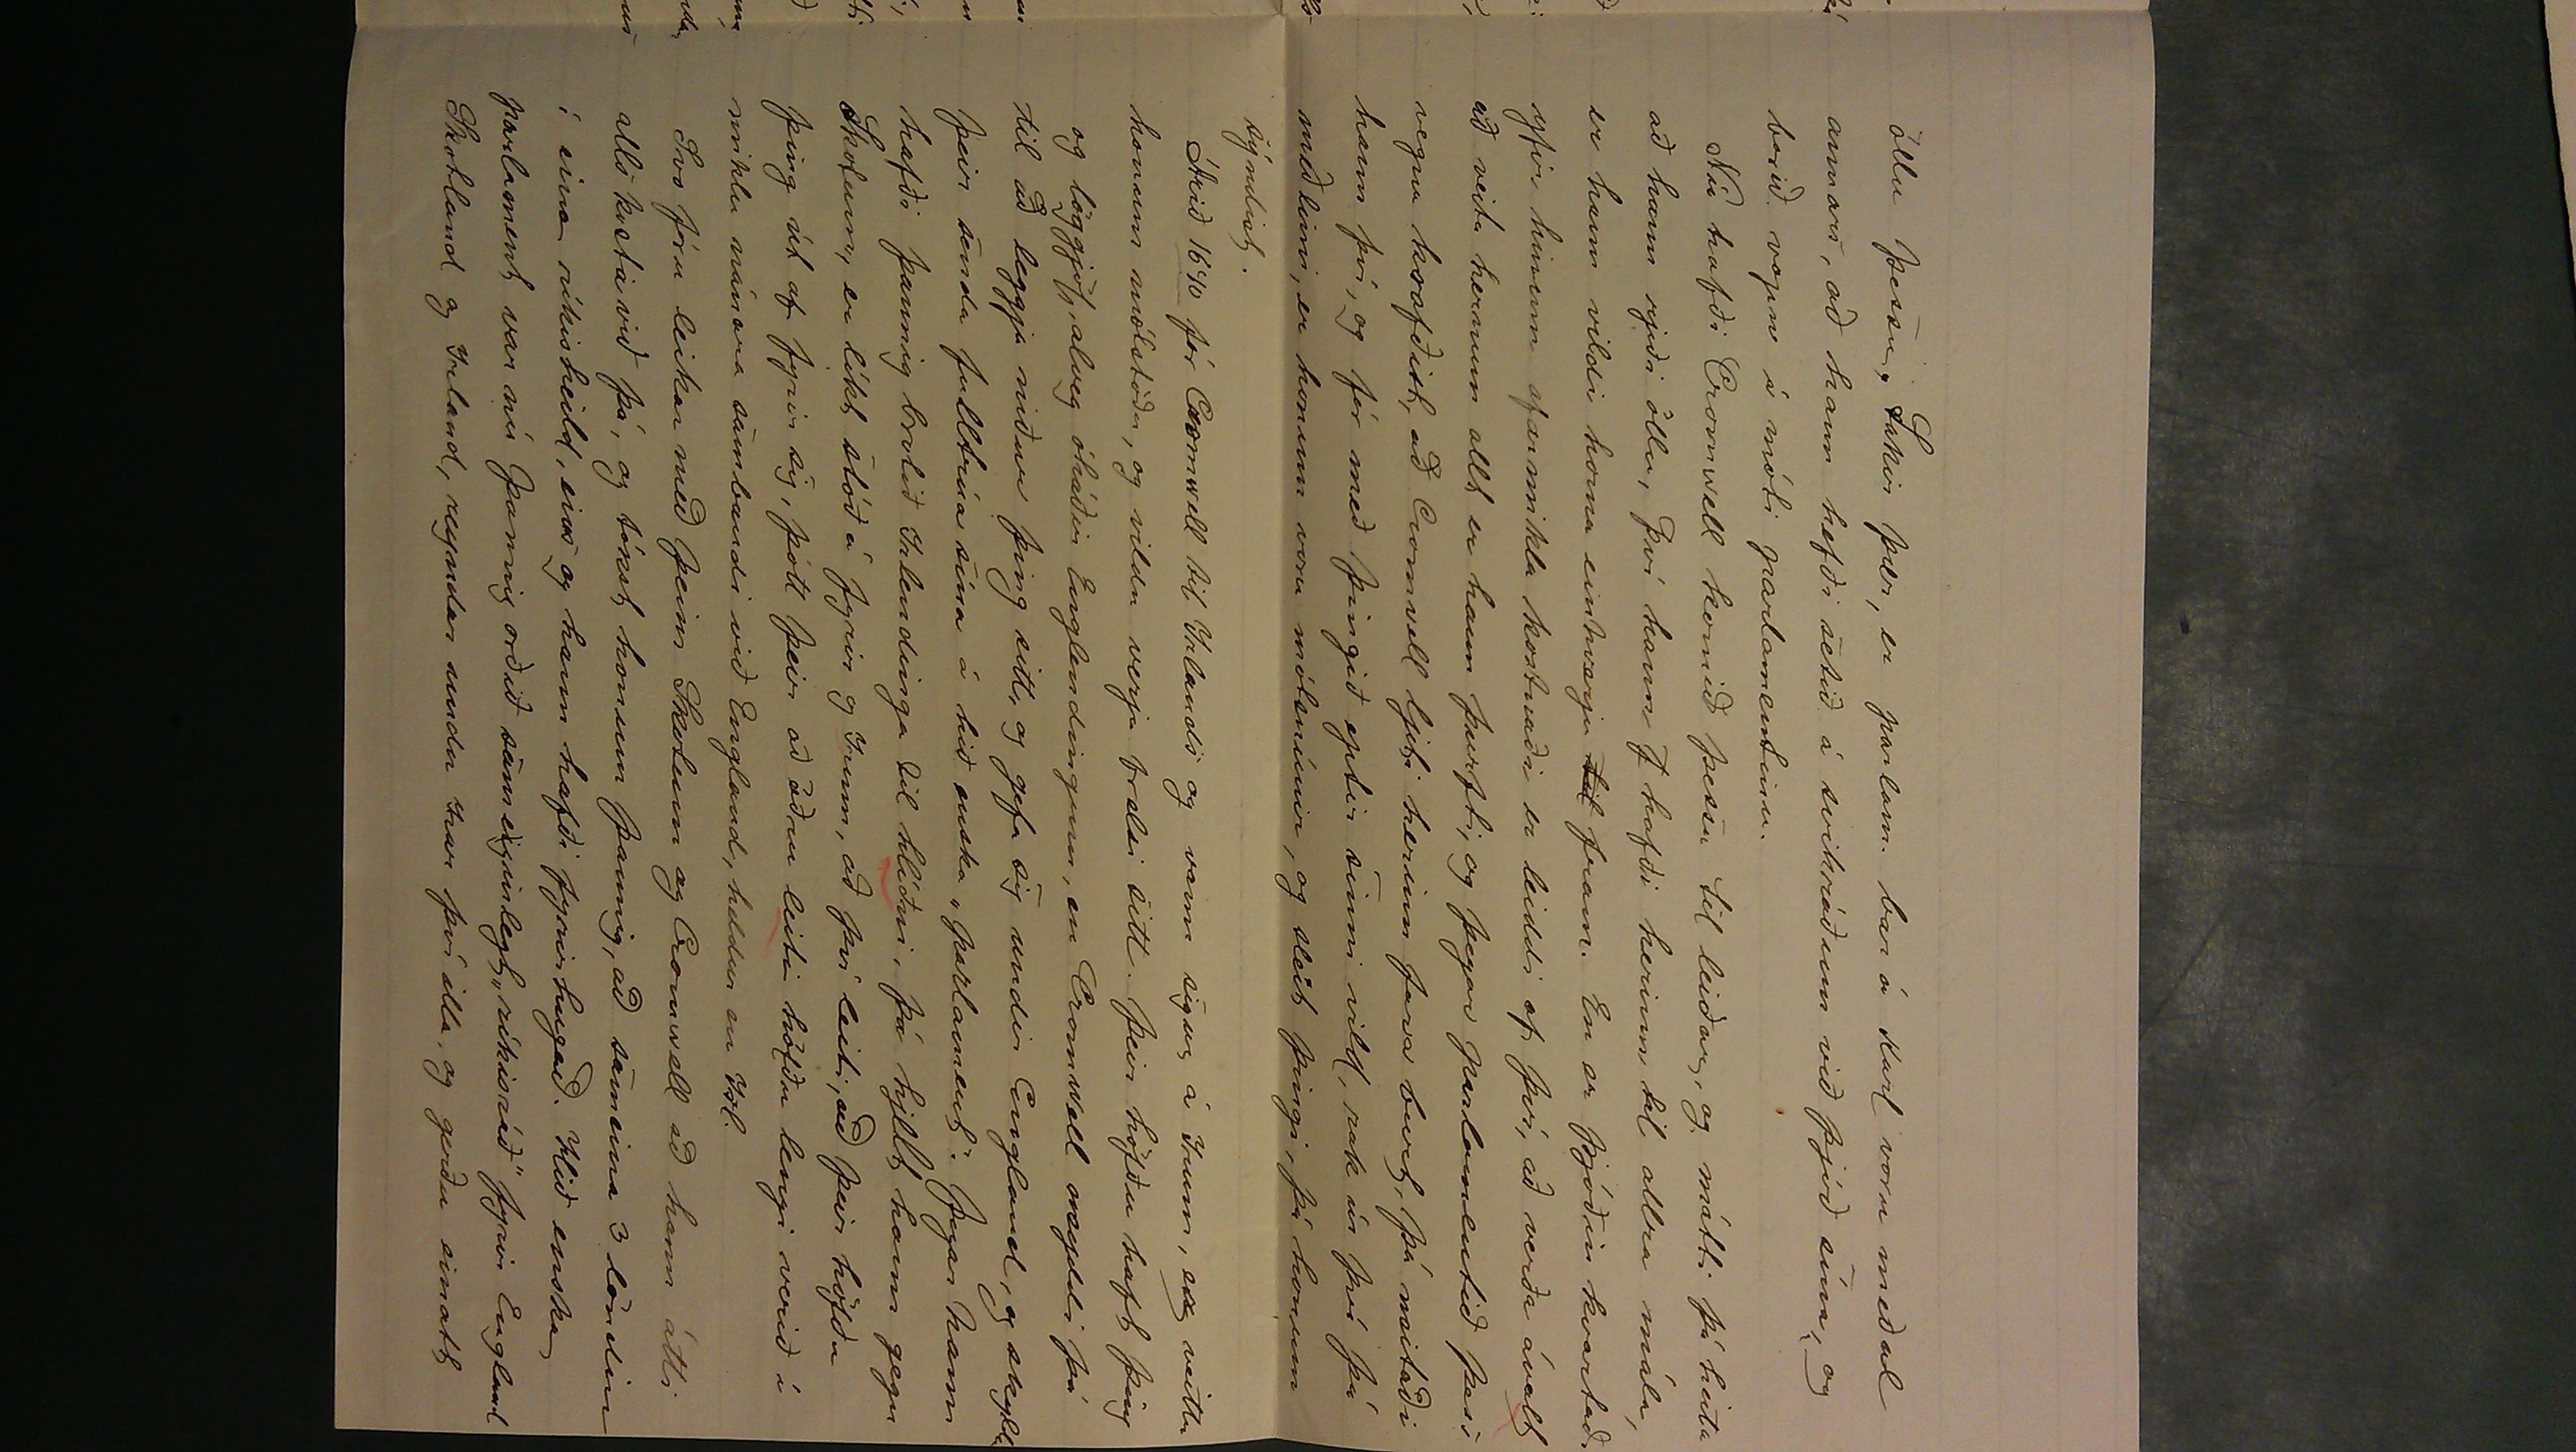 öllu þessu, Sakir þær, er parlam. bar á Karl voru meðal
annars, að hann hefði setið á svikráðum við þjóð sína, og
borið vopn á móti parlamentinu.
Nú hafði Cromwell komið þessu til leiðar, og mátti þá heita
að hann rjeði öllu, því hann hafði herinn til allra mála,
er hann vildi koma einhverju fram. En er þjóðin kvartaði
yfir hinum afarmikla kostnaði er leiddi af því, að verða ávalt
að veita hernum allt er hann þurfti, og þegar parlamentið þess
vegna krafðist, að Cromvell ljeti herinn fara burt, þá neitaði
hann því, og fór með þingið eptir sinni vild, rak úr því þá
meðlimi, er honum voru mótsnúnir, og sleit þingi, þá honum
sýndist.
Árið 1640 fór Cromwell til Irlands og vann sigur á Irum, er veittu
honum mótstöðu, og vildu verja frelsi sitt. Þeir höfðu haft þing
og löggjöf, alveg óháðir Englendingum, en Cromwell neyddi þá
til að leggja niður þing sitt, og gefa sig undir England, og skyldu
þeir senda fulltrúa sína á hið enska "parlament". Þegar hann
hafði þannig brotið Irlendinga til hlíðni, þá hjelt hann gegn
Skotum, er líkt stóð á fyrir og Irum, að því leiti, að þeir höfðu
þing út af fyrir sig, þótt þeir að öðru leiti höfðu lengi verið í
miklu nánara sambandi við England, heldur en Irl.
Svo fóru leikar með þeim Skotum og Cromwell að hann átti
alls kosti við þá, og tókst honum þannig, að sameina 3 löndin
í eina ríkisheild, eins og hann hafði fyrirhugað. Hið enska
parlament var nú þannig orðið sameiginlegt "ríkisráð" fyrir England
Skotland og Irland, reyndar undu Irar því illa, og gerðu einatt